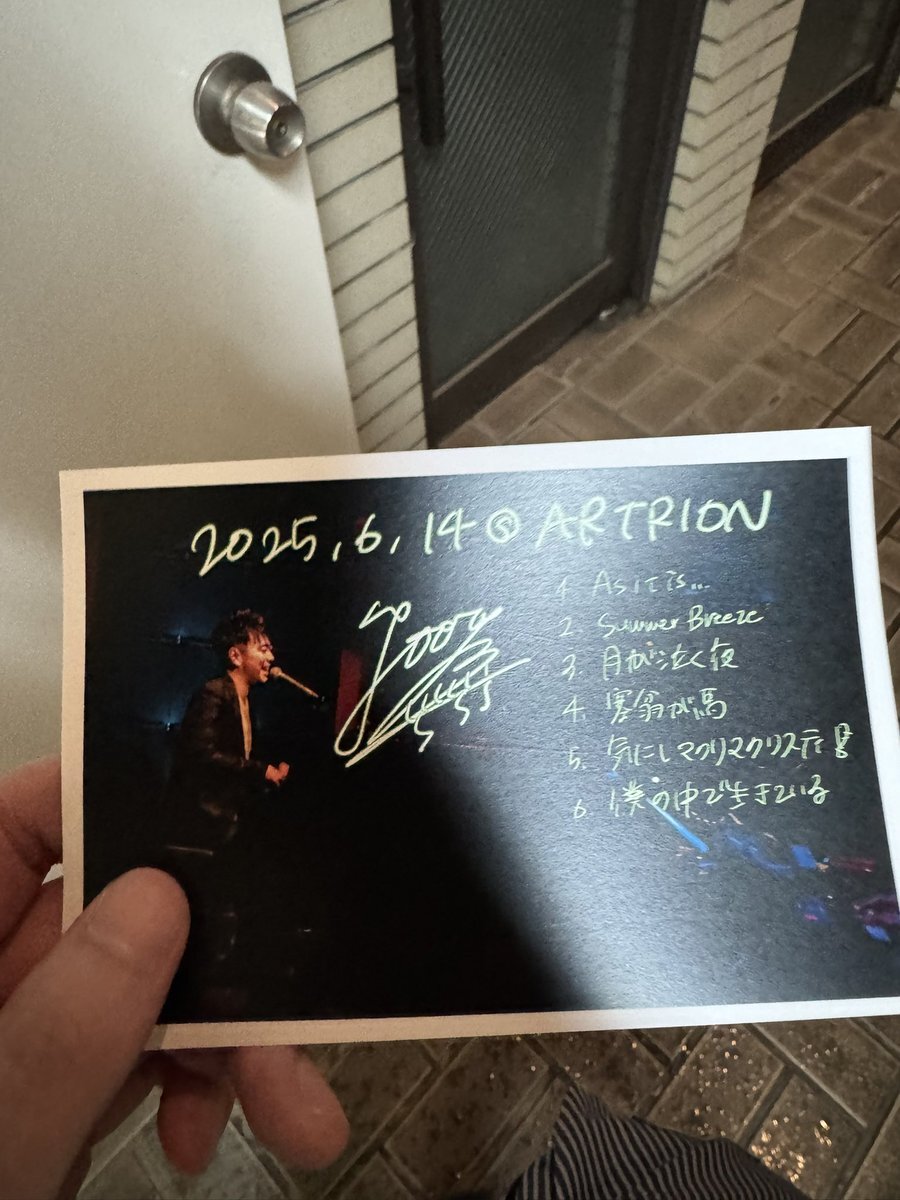 2025,6,14 @ ARTRION
1. As it is...
2. Summer Breeze
3. 月が泣く夜
4. 塞翁が馬
5. 気にしマクリマクリスティ!!
6. 僕の中で生きている